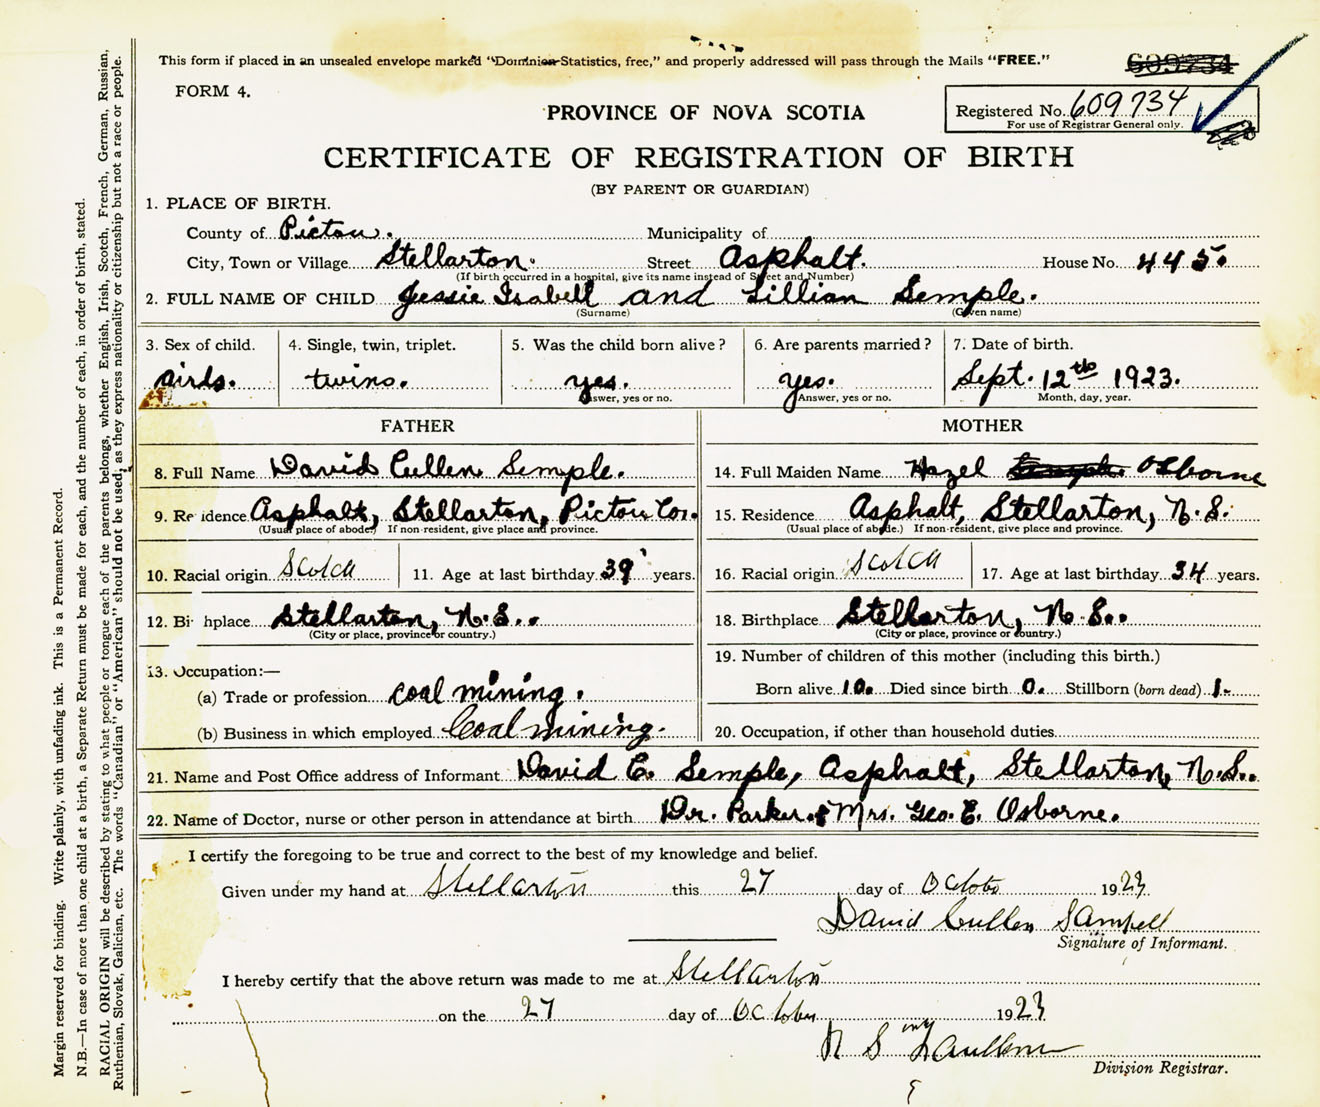 This form if placed in an unsealed envelope marked "Dominion Statistics, free," and properly addressed will pass through the Mails "FREE."
609734
FORM 4.
PROVINCE OF NOVA SCOTIA
Registered No. 609734
For use of Registrar General only.
CERTIFICATE OF REGISTRATION OF BIRTH
(BY PARENT OR GUARDIAN)
1. PLACE OF BIRTH.
County of Pictou. Municipality of
City, Town or Village Stellarton. Street Asphalt. House No. 445.
(If birth occurred in a hospital, give its name instead of Street and Number)
2. FULL NAME OF CHILD Jessie Isabell and Lillian Semple.
(Surname) (Given name)
3. Sex of child. 4. Single, twin, triplet. 5. Was the child born alive? 6. Are parents married? 7. Date of birth.
girls. twins. yes. yes. Sept. 12th 1923.
Answer, yes or no. Answer, yes or no. Month, day, year.
FATHER MOTHER
8. Full Name David Cullen Semple. 14. Full Maiden Name Hazel Semple Osborne
9. Re idence Asphalt, Stellarton, Pictou Co. 15. Residence Asphalt, Stellarton, N.S.
(Usual place of abode) If non-resident, give place and province. (Usual place of abode.) If non-resident, give place and province.
10. Racial origin Scotch 11. Age at last birthday 39 years. 16. Racial origin Scotch 17. Age at last birthday 34 years.
12. Bi hplace Stellarton, N.S.. 18. Birthplace Stellarton, N.S..
(City or place, province or country.) (City or place, province or country.)
13. Occupation:— 19. Number of children of this mother (including this birth.)
(a) Trade or profession coal mining. Born alive 10. Died since birth 0. Stillborn (born dead) 1.
(b) Business in which employed Coal mining. 20. Occupation, if other than household duties
21. Name and Post Office address of Informant David C. Semple, Asphalt, Stellarton, N.S..
22. Name of Doctor, nurse or other person in attendance at birth Dr. Parker & Mrs. Geo. E. Osborne.
I certify the foregoing to be true and correct to the best of my knowledge and belief.
Given under my hand at Stellarton this 27 day of Octobr 1923.
David Cullen Sampell
Signature of Informant.
I hereby certify that the above return was made to me at Stellarton
on the 27 day of October 1923
N S
Division Registrar.
Margin reserved for binding. Write plainly, with unfading ink. This is a Permanent Record.
N.B.—In case of more than one child at a birth, a Separate Return must be made for each, and the number of each, in order of birth, stated.
RACIAL ORIGIN will be described by stating to what people or tongue each of the parents belongs, whether English, Irish, Scotch, French, German, Russian,
Ruthenian, Slovak, Galician, etc. The words "Canadian" or "American" should not be used, as they express nationality or citizenship but not a race or people.